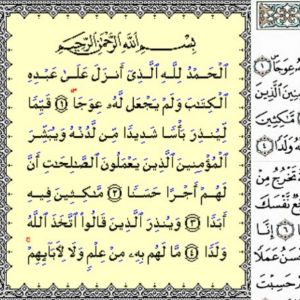 بِسْمِ ٱللَّهِ ٱلرَّحْمَٰنِ ٱلرَّحِيمِ
ٱلْحَمْدُ لِلَّهِ ٱلَّذِىٓ أَنزَلَ عَلَىٰ عَبْدِهِ
ٱلْكِتَٰبَ وَلَمْ يَجْعَل لَّهُۥ عِوَجَا ۜ ﴿١﴾ قَيِّمًا
لِّيُنذِرَ بَأْسًا شَدِيدًا مِّن لَّدُنْهُ وَيُبَشِّرَ
ٱلْمُؤْمِنِينَ ٱلَّذِينَ يَعْمَلُونَ ٱلصَّٰلِحَٰتِ أَنَّ
لَهُمْ أَجْرًا حَسَنًا ﴿٢﴾ مَّٰكِثِينَ فِيهِ
أَبَدًا ﴿٣﴾ وَيُنذِرَ ٱلَّذِينَ قَالُوا۟ ٱتَّخَذَ ٱللَّهُ
وَلَدًا ﴿٤﴾ مَّا لَهُم بِهِۦ مِنْ عِلْمٍ وَلَا لِءَابَآئِهِمْ ۚ
عِوَجَا ۜ ﴿١﴾
ٱلَّذِينَ
مَّٰكِثِينَ
وَلَدًا ﴿٤﴾
تَخْرُجُ مِنْ
نَّفْسَكَ
﴿٦﴾ إِنَّا
عَمَلًا
حَسِبْتَ